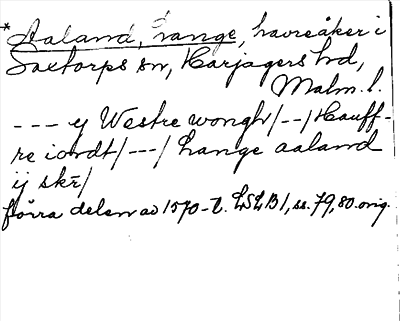 *Aaland, hange, havreåker i
Saxtorps sn, Harjagers hd,
Malm. l.
--- y Westre wongh/--/Hauff-
re iordt/---/hange aaland
ij skr/
förra delen av 1570-t. LSLB1, ss. 79, 80. orig.